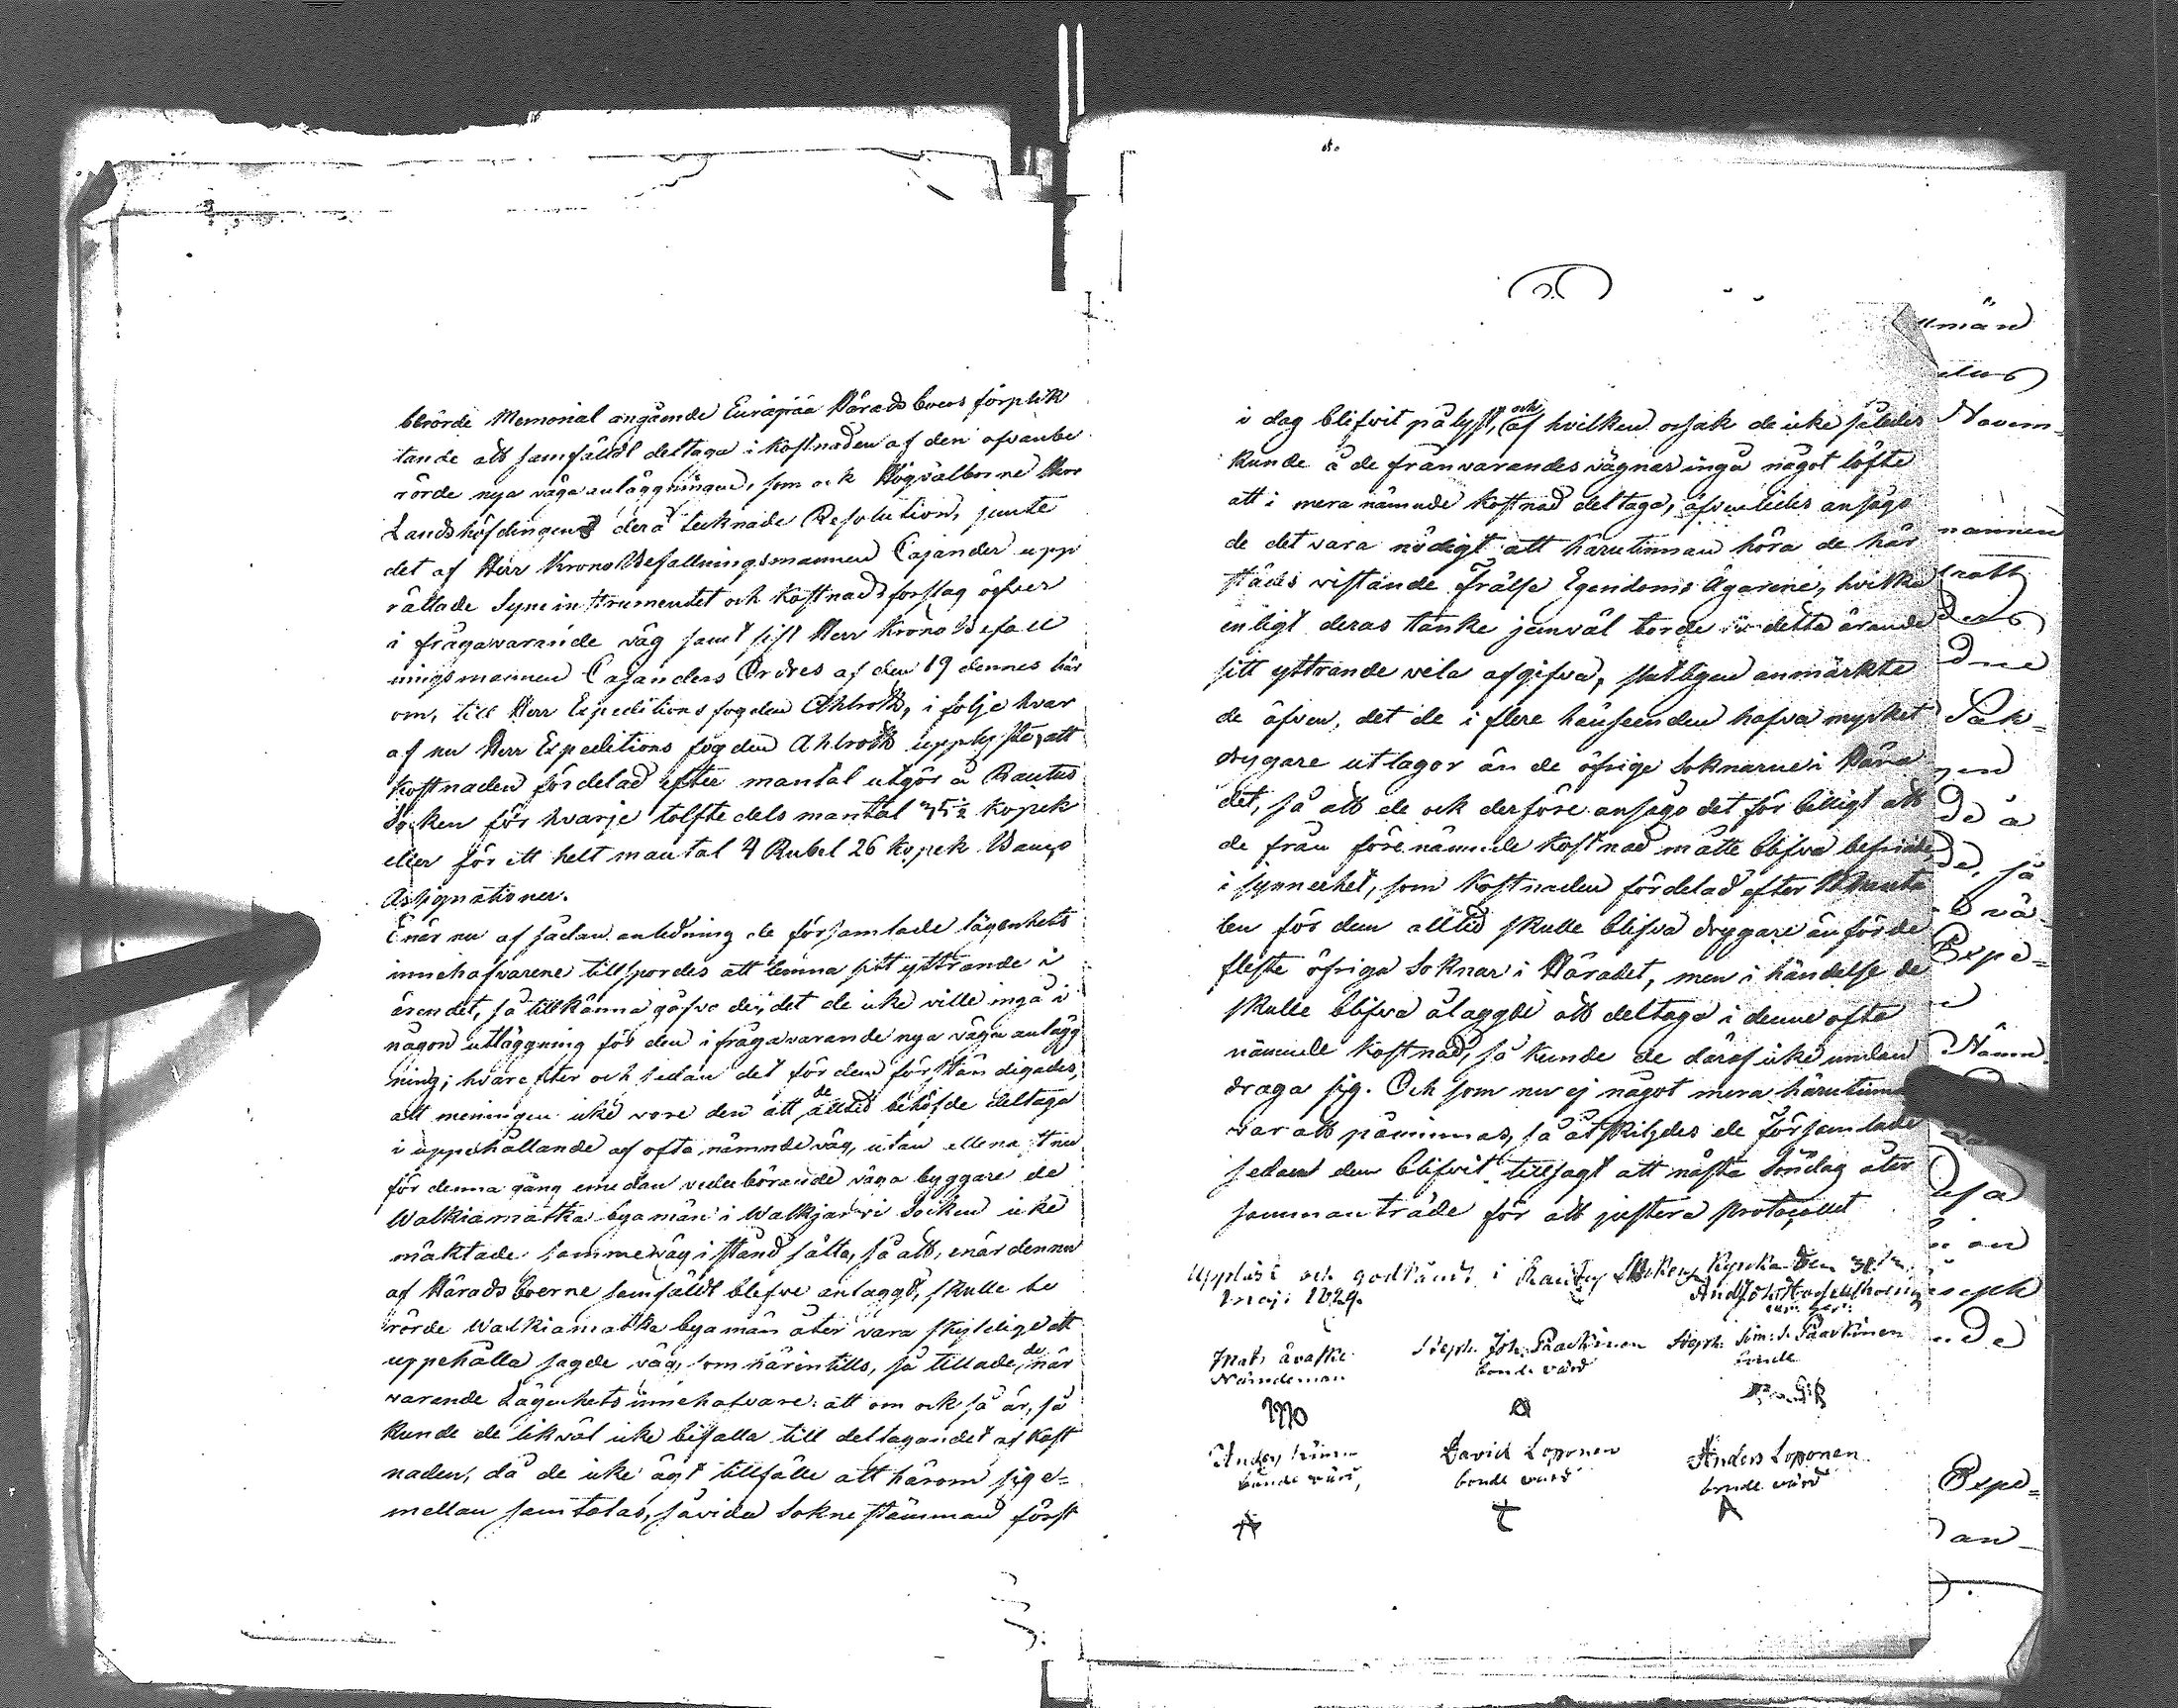 berörde Memorial angående Euräpää Härads boers förplik
tande att samfäldt deltaga i kostnaden af den ofvanbe
rörde nya väga anläggningen, som ock Högvälborne Herr
Landshöfdingens derå tecknade Resolution, jemte
det af Herr KronoBefallningsmannen Cajander upp
rättade Syneinstrumentet och Kostnadsförslag öfver
i frågavarande väg samt sist Herr KronoBefall
ningsmannen Cajanders Ordres af den 19 dennes här
om, till Herr Expeditions fogden Ahlroth, i följe hvar
af nu Herr Expeditions fogden Ahlroth upplyste, att
Kostnaden fördelad efter mantal utgör å Rautus
Socken för hvarje tolfte dels mantal 35½ Kopek
eller för ett helt mantal 4 Rubel 26 Kopek Banco
Assignationer.
Enär nu af sådan anledning de församlade lägenhets
innehafvarene tillspordes att lemna sitt yttrande i
ärendet, så tillkänna gåfvo de, det de icke ville ingå i
någon utläggning för den i frågavarande nya väga anlägg
ning; hvarefter och sedan det för dem förständigades,
att meningen icke vore den att de alltid behöfde deltaga
i uppehållande af ofta nämnde väg, utan allenast nu
för denna gång emedan vederbörande väga byggare de
Walkiamatka byamän i Walkjarvi Socken icke
mäktade samme väg i stånd sätta, så att, enär denna
af Härads boerne samfäldt blefve anlaggd, skulle be
rörde Walkiamatka byamän åter vara skyldige att
uppehålla sagde väg, som härintills, så tillade de när
varande Lägenhets innehafvare: att om ock så är, så
kunde de likväl icke bifalla till deltagandet af Kost
naden, då de icke ägt tillfälle att härom sig e=
mellan samtalas, såvida Sokne stämman först
i dag blifvit pålyst, och af hvilken orsak de icke således
kunde å de frånvarandes vägnar ingå något löfte
att i mera nämnde Kostnad deltaga, äfvenledes ansågo
de det vara nödigt att härutinnan höra de här
städes vistande Frälse Egendoms Ägarene, hvilka
enligt deras tanke jemväl torde i detta ärende
sitt yttrande vela afgifva, slutligen anmärkte
de äfven, det de i flere hänseenden hafva mycket
drygare utlagor än de öfrige Soknarne i Hära
det, så att de ock derföre ansågo det för billigt att
de från förenämnde Kostnad måtte blifva befriade
i synnerhet, som Kostnaden fördelad efter Manta
len för dem alltid skulle blifva drygare än för de
fleste öfriga Soknar i Häradet, men i händelse de
skulle blifva ålaggde att deltaga i denne ofta
nämnde kostnad, så kunde de däraf icke undan
draga sig. Och som nu ej något mera härutinnan
var att påminnas, så åtskildes de Församlade
sedan dem blifvit tillsagt att nästa Söndag åter
sammanträde för att justera protocollet
Uppläst och godkändt i Rautus Sokens Kyrka den 31
Maj 1829.
Nämndeman
Steph. Joh. Paackinen Steph. Sim: s. Paackinen
bonde värd bonde
Anders
bonde värd,
David Loponen
bonde värd
Anders Loponen
bonde värd